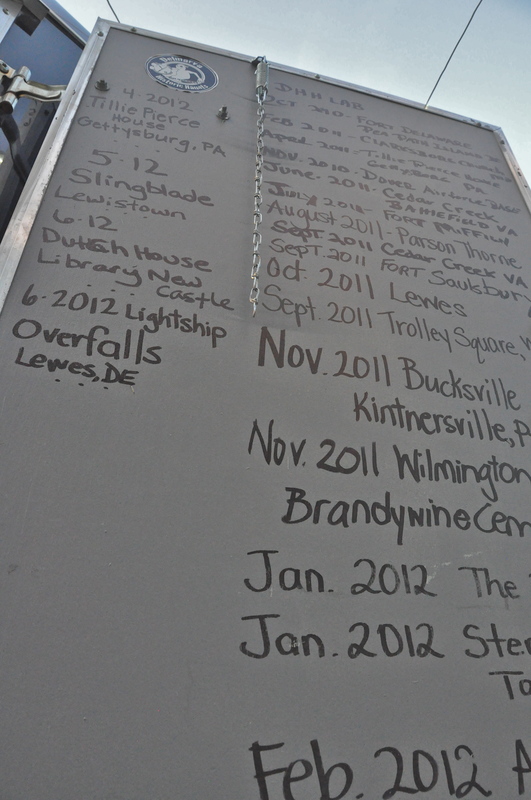 Delmarva
Historic Haunts
4-2012
Tillie Pierce
House
Gettysburg, PA
5-12
Slingblade
Lewistown
6-12
Dutch House
Library New
Castle
6-2012 Lightship
Overfalls
Lewes, DE
DHH LAB
Oct 2010 - Fort Delaware
Feb 2011 -
April 2011 - Tillie Pierce House
Gettysburg PA
Nov. 2010 - Dover Airforce Base
June 2011 - Cedar Creek
Battlefield VA
July 2011 - Fort Mifflin
August 2011 - Parson Thorne
Sept 2011 Cedar Creek VA
Sept. 2011 Fort Saulsbury
Oct. 2011 Lewes
Sept. 2011 Trolley Square, W
Nov. 2011 Bucksville
Kintnersville, P
Nov. 2011 Wilmington
Brandywine Cem
Jan. 2012 The
Jan. 2012 Ste
To
Feb. 2012 A